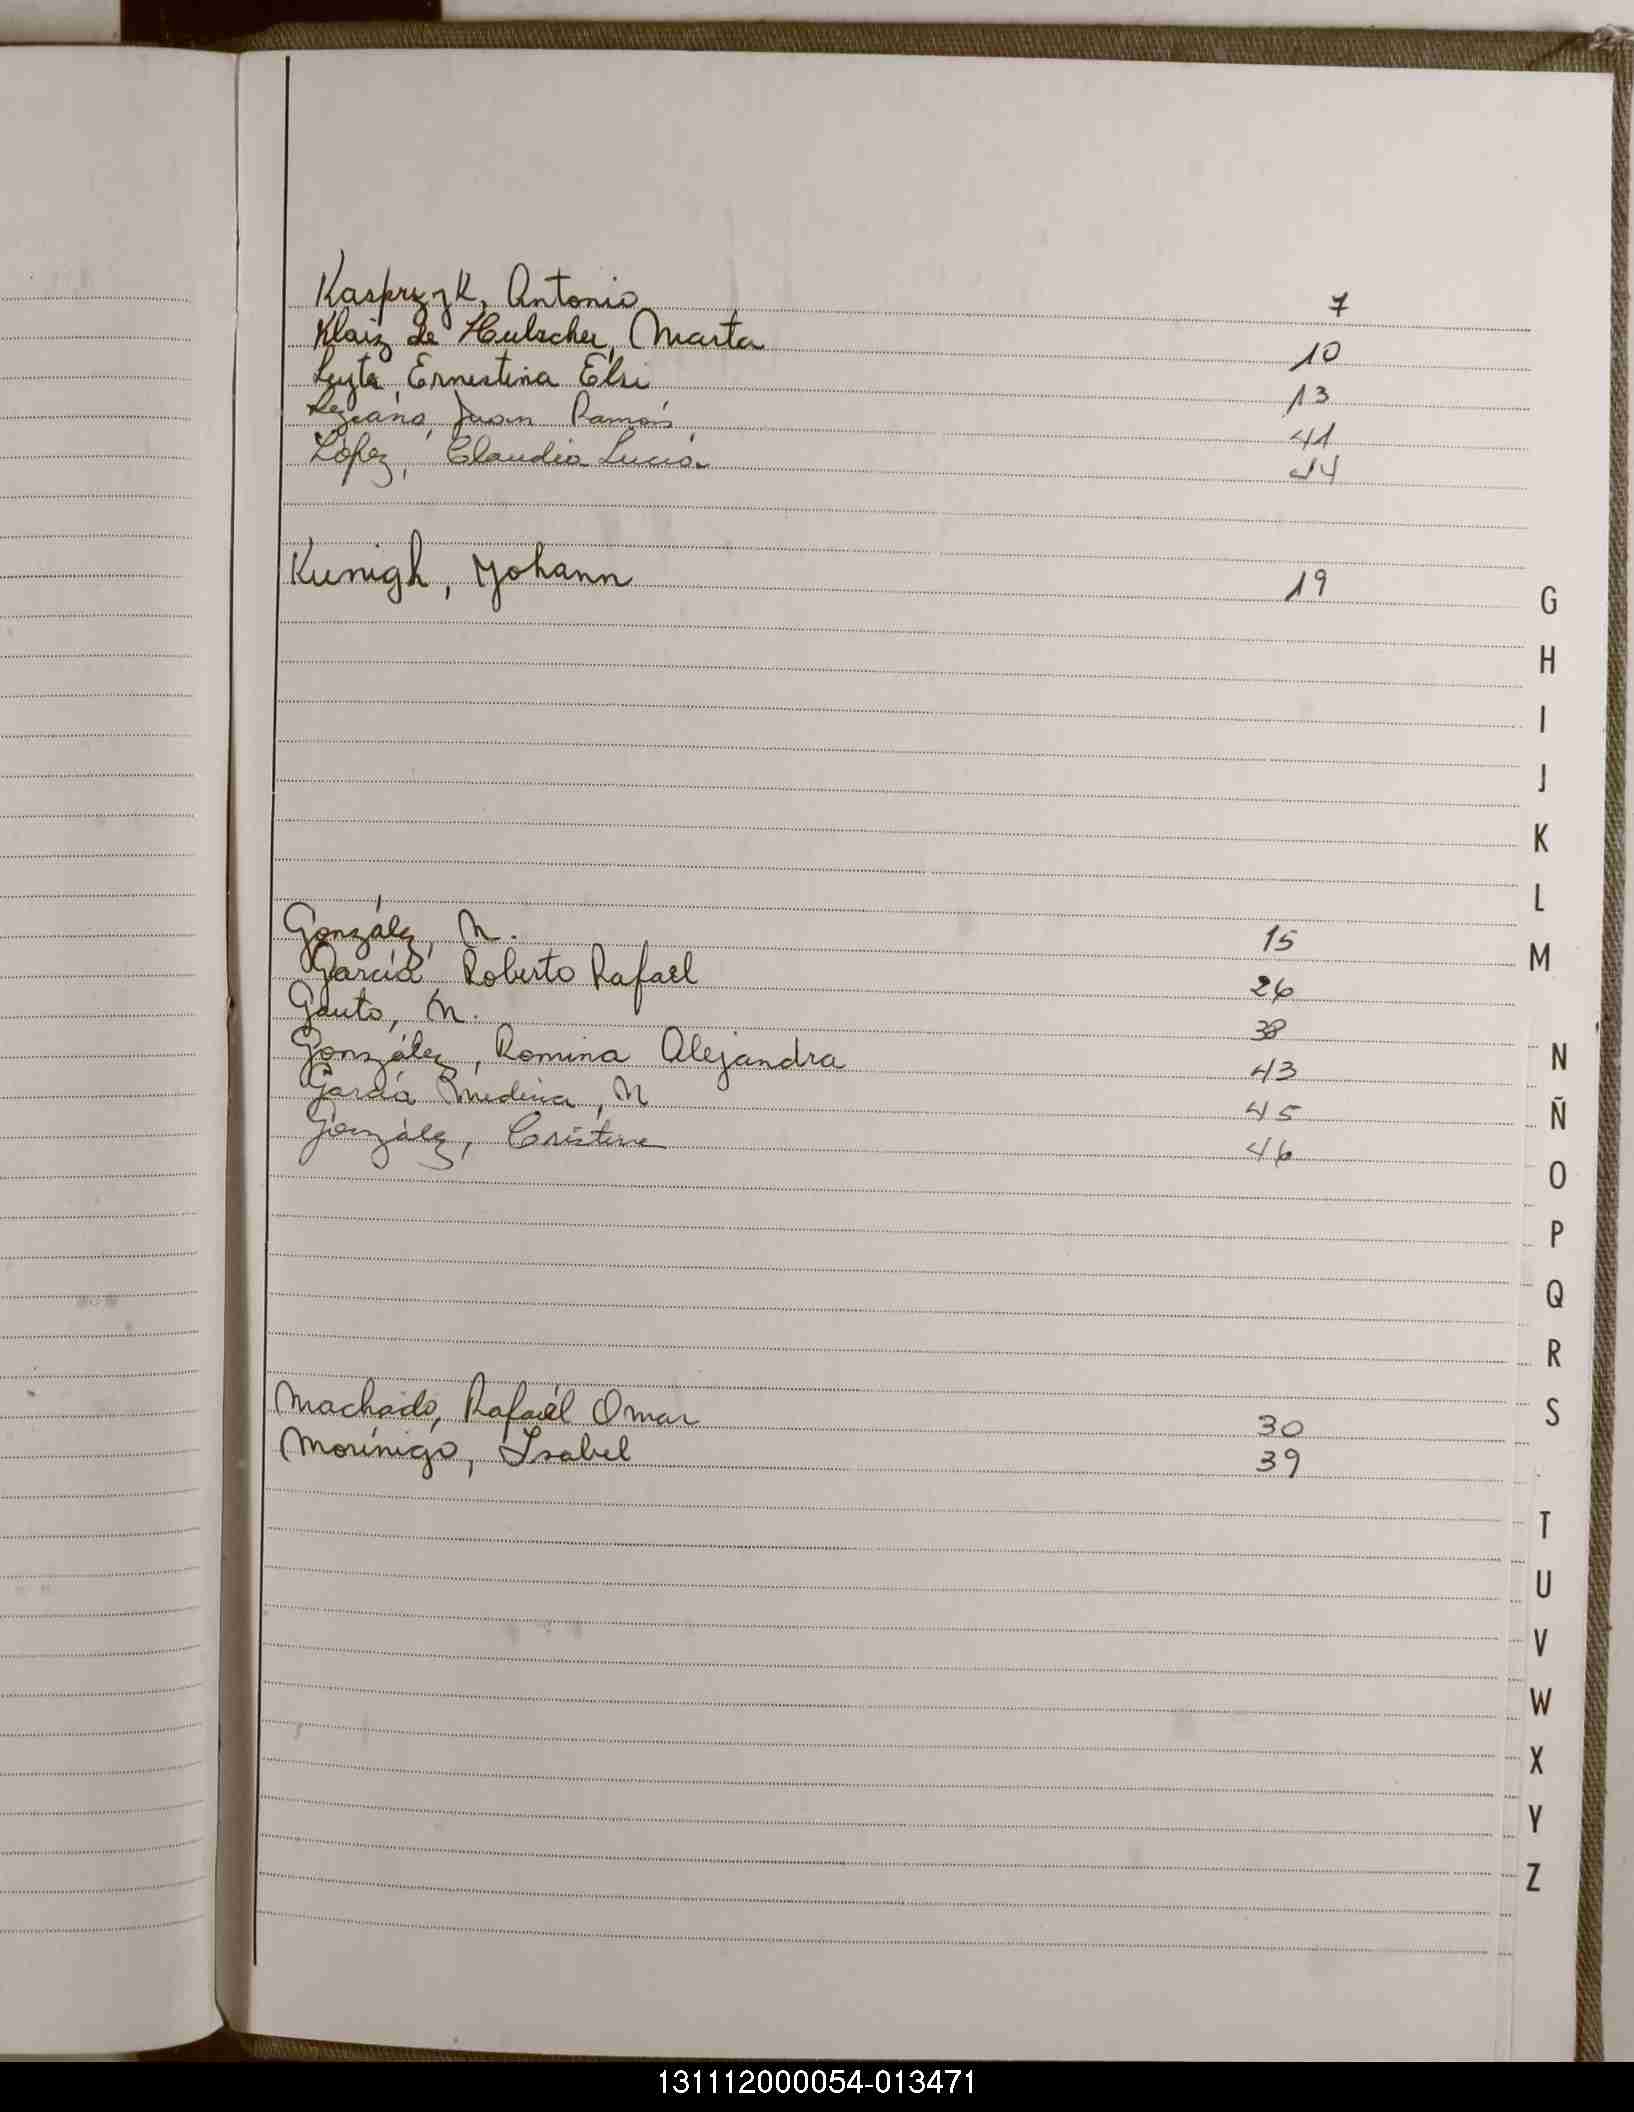 Kasprzyk, Antonio 7
Klaiz de Hulscher, Marta 10
Ernestina Elsi 13
Lezcano, Juan Ramón 41
López, Claudia Lucía 44
Kunigh, Yohann 19
González, N. 15
García Roberto Rafael 26
Gauto, N. 38
González, Romina Alejandra 43
García Medina, N 45
González, Cristina 46
Machado, Rafaél Omar 30
Morínigo, Isabel 39
G
H
I
J
K
L
M
N
Ñ
O
P
Q
R
S
T
U
V
W
X
Y
Z
131112000054-013471